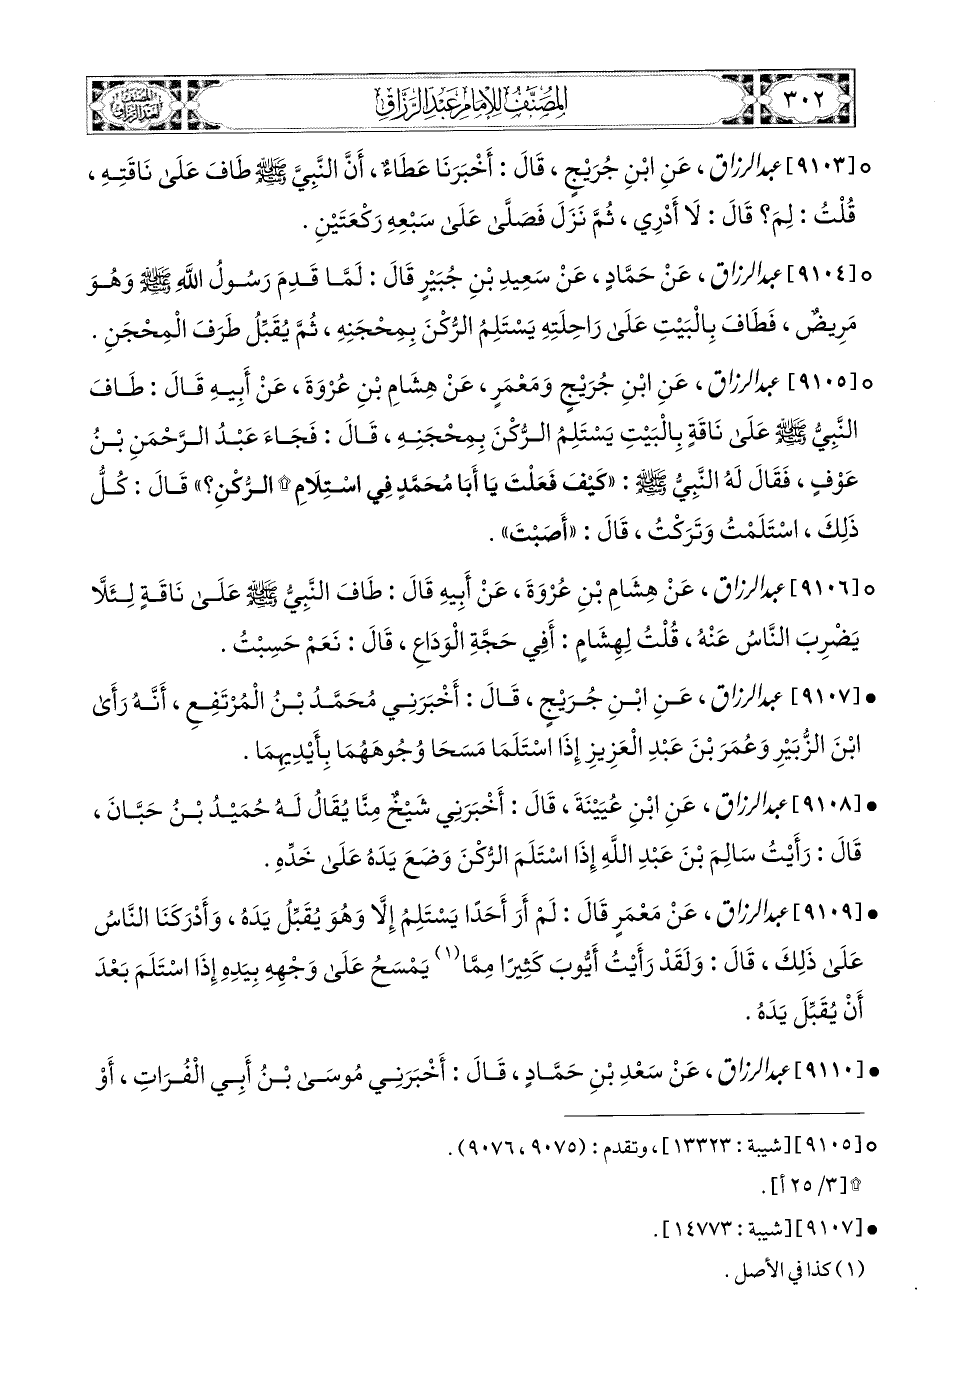 ٣٠٢
المصنف للإمام عبد الرزاق
المصنف لعبد الرزاق
٥ [٩١٠٣] عبد الرزاق، عَنِ ابْنِ جُرَيْجٍ، قَالَ: أَخْبَرَنَا عَطَاءٌ، أَنَّ النَّبِيَّ ﷺ طَافَ عَلَىٰ نَاقَتِهِ،
قُلْتُ: لِمَ؟ قَالَ: لَا أَدْرِي، ثُمَّ نَزَلَ فَصَلَّىٰ عَلَىٰ سَبْعِهِ رَكْعَتَيْنِ.
٥ [٩١٠٤] عبد الرزاق، عَنْ حَمَّادٍ، عَنْ سَعِيدِ بْنِ جُبَيْرٍ قَالَ: لَمَّا قَدِمَ رَسُولُ اللَّهِ ﷺ وَهُوَ
مَرِيضٌ، فَطَافَ بِالْبَيْتِ عَلَىٰ رَاحِلَتِهِ يَسْتَلِمُ الرُّكْنَ بِمِحْجَنِهِ، ثُمَّ يُقَبِّلُ طَرَفَ الْمِحْجَنِ.
٥ [٩١٠٥] عبد الرزاق، عَنِ ابْنِ جُرَيْجٍ وَمَعْمَرٍ، عَنْ هِشَامِ بْنِ عُرْوَةَ، عَنْ أَبِيهِ قَالَ: طَافَ
النَّبِيُّ ﷺ عَلَىٰ نَاقَةٍ بِالْبَيْتِ يَسْتَلِمُ الرُّكْنَ بِمِحْجَنِهِ، قَالَ: فَجَاءَ عَبْدُ الرَّحْمَنِ بْنُ
عَوْفٍ، فَقَالَ لَهُ النَّبِيُّ ﷺ: «كَيْفَ فَعَلْتَ يَا أَبَا مُحَمَّدٍ فِي اسْتِلَامِ۩ الرُّكْنِ؟» قَالَ: كُلُّ
ذَلِكَ، اسْتَلَمْتُ وَتَرَكْتُ، قَالَ: «أَصَبْتَ».
٥ [٩١٠٦] عبد الرزاق، عَنْ هِشَامِ بْنِ عُرْوَةَ، عَنْ أَبِيهِ قَالَ: طَافَ النَّبِيُّ ﷺ عَلَىٰ نَاقَةٍ لِئَلَّا
يَضْرِبَ النَّاسُ عَنْهُ، قُلْتُ لِهِشَامٍ: أَفِي حَجَّةِ الْوَدَاعِ، قَالَ: نَعَمْ حَسِبْتُ.
• [٩١٠٧] عبد الرزاق، عَنِ ابْنِ جُرَيْجٍ، قَالَ: أَخْبَرَنِي مُحَمَّدُ بْنُ الْمُرْتَفِعِ، أَنَّهُ رَأَىٰ
ابْنَ الزُّبَيْرِ وَعُمَرَ بْنَ عَبْدِ الْعَزِيزِ إِذَا اسْتَلَمَا مَسَحَا وُجُوهَهُمَا بِأَيْدِيهِمَا.
• [٩١٠٨] عبد الرزاق، عَنِ ابْنِ عُيَيْنَةَ، قَالَ: أَخْبَرَنِي شَيْخٌ مِنَّا يُقَالُ لَهُ حُمَيْدُ بْنُ حَبَّانَ،
قَالَ: رَأَيْتُ سَالِمَ بْنَ عَبْدِ اللَّهِ إِذَا اسْتَلَمَ الرُّكْنَ وَضَعَ يَدَهُ عَلَىٰ خَدِّهِ.
• [٩١٠٩] عبد الرزاق، عَنْ مَعْمَرٍ قَالَ: لَمْ أَرَ أَحَدًا يَسْتَلِمُ إِلَّا وَهُوَ يُقَبِّلُ يَدَهُ، وَأَدْرَكْنَا النَّاسُ
عَلَىٰ ذَلِكَ، قَالَ: وَلَقَدْ رَأَيْتُ أَيُّوبَ كَثِيرًا مِمَّا(١) يَمْسَحُ عَلَىٰ وَجْهِهِ بِيَدِهِ إِذَا اسْتَلَمَ بَعْدَ
أَنْ يُقَبِّلَ يَدَهُ.
• [٩١١٠] عبد الرزاق، عَنْ سَعْدِ بْنِ حَمَّادٍ، قَالَ: أَخْبَرَنِي مُوسَىٰ بْنُ أَبِي الْفُرَاتِ، أَوْ
٥ [٩١٠٥] [شيبة: ١٣٣٢٣]، وتقدم: (٩٠٧٥، ٩٠٧٦).
۩ [٣/ ٢٥ أ].
• [٩١٠٧] [شيبة: ١٤٧٧٣].
(١) كذا في الأصل.